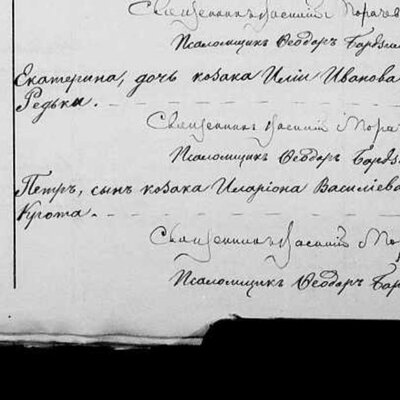 Священникъ Василій
Псаломщикъ Ѳеодоръ
Екатерина, дочь козака Иліи Иванова
Редьки.
Священникъ Василій
Псаломщикъ Ѳеодоръ
Петръ, сынъ козака Иларіона Василіева
Крота.
Священникъ Василій
Псаломщикъ Ѳеодоръ